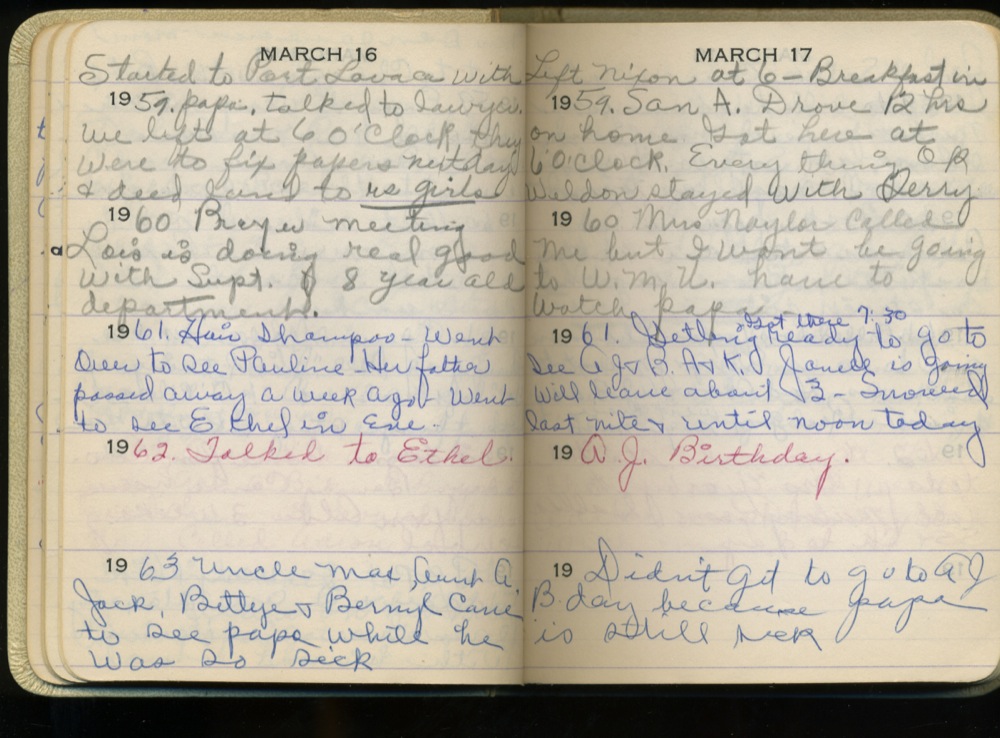 MARCH 16
Started to Port Lavaca with
1959. papa, talked to lawyer.
We left at 6 O'Clock they
were to fix papers next day
& deed land to us girls
1960 Prayer meeting
Lois is doing real good
with Supt. of 8 year old
department.
1961. Hair Shampoo - Went
Over to see Pauline - Her father
passed away a week ago - Went
to see Ethel in Eve.
1962. Talked to Ethel.
1963 Uncle Max, Aunt A
Jack, Bettye & Bernyl Came
to see papa while he
was so sick
MARCH 17
Left Nixon at 6 - Breakfast in
1959. San A. Drove 12 hrs
on home Got here at
6 O'Clock. Every thing O K
Weldon stayed with Perry
1960 Mrs Naylor Called
me but I wont be going
to W.M.U. have to
watch papa -
Got there 7:30
1961. Getting ready to go to
see A J & B. A & K. Janell is going
will leave about 3 - Snowed
last nite & until noon today
19 A. J. Birthday.
19 Didn't get to go to A J
B.day because papa
is still sick